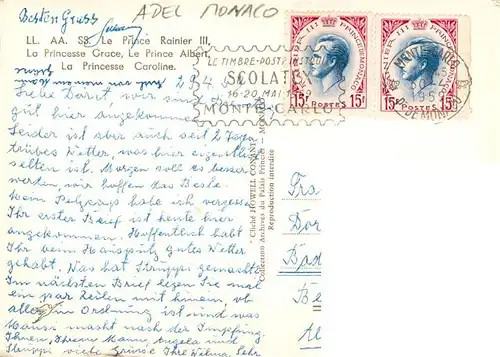 Besten Gruss
ADEL MONACO
LL. AA. SS. Le Prince Rainier III,
La Princesse Grace, Le Prince Albert,
La Princesse Caroline.
LE TIMBRE-POSTE INSTRUIT
SCOLATEX
16-20 MAI
MONTE-CARLO
RAINIER III PRINCE DE MONACO
15F POSTES 15F
MONTE-CARLO
PTE DE MONACO
Liebe Dorit, wir sind
gut hier angekommen.
Leider ist aber auch seit 2 Tagen
trübes Wetter, was hier eigentlich
selten ist. Morgen soll es besser
werden, wir hoffen das Beste.
habe ich vergessen
Ihr erster Brief ist heute hier
angekommen. Hoffentlich habt
Ihr beim gutes Wetter
gehabt. Was hat Struppi gemacht?
Im nächsten Brief legen Sie mal
ein paar Zeilen mit hinein, ob
alles in Ordnung ist und was
Mausi macht nach der Impfung.
Ihnen, Ihrem Mann, Angela und
Struppi viele Grüsse Ihre Wilma Sehr
Cliché HOWELL CONANT
Collection Archives du Palais Princier — MONACO
Reproduction interdite
Fra
Dor
Bad
Be